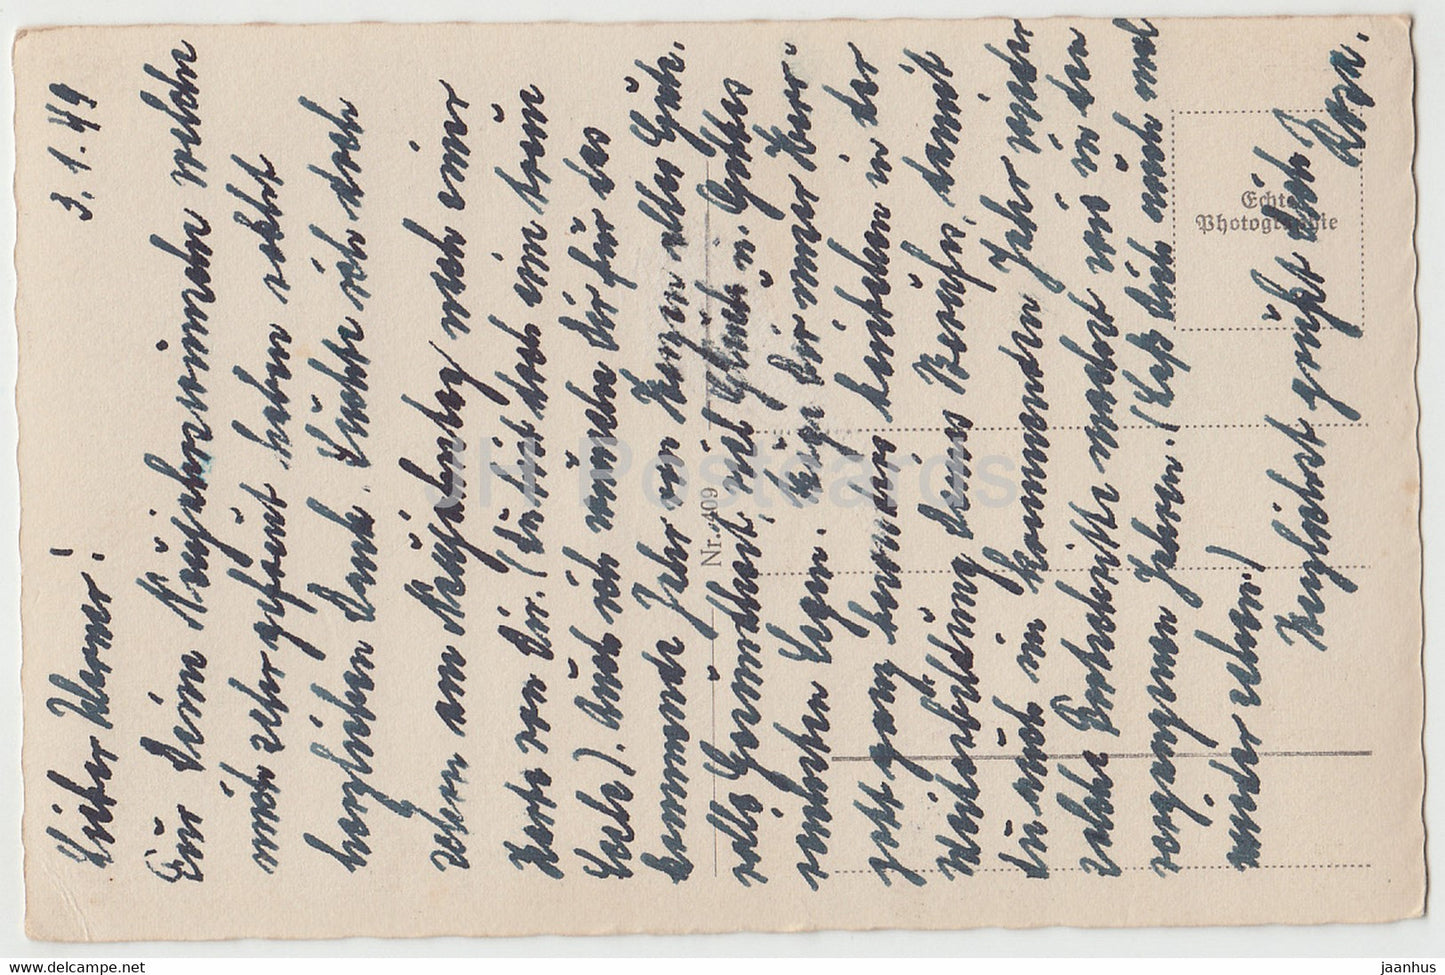 3.1.49
Lieber Werner!
Für Deine Neujahrswünsche welche
mich sehr gefreut haben sehr
herzlichen Dank. Dachte ich doch
schon am Neujahrstag noch eine
Karte von Dir. (Du bist doch eine treue
Seele). Auch ich wünsche Dir für das
kommende Jahr von Herzen alles Gute.
Gesundheit, viel Glück u. Gottes
reichsten Segen. Möge Dir unser Herr-
gott ganz besonders beistehen in der
Weiterbildung deines Berufes, damit
Du auch im kommenden Jahr wieder
solche Fortschritte machst wie in den
vergangenen Jahren. (Laß dich auch mal
wieder sehen.)
Herzlichst grüßt dich
Rosa.
Echte
Photographie
Nr. 409
JH Postcards
www.delcampe.net
jaanhus